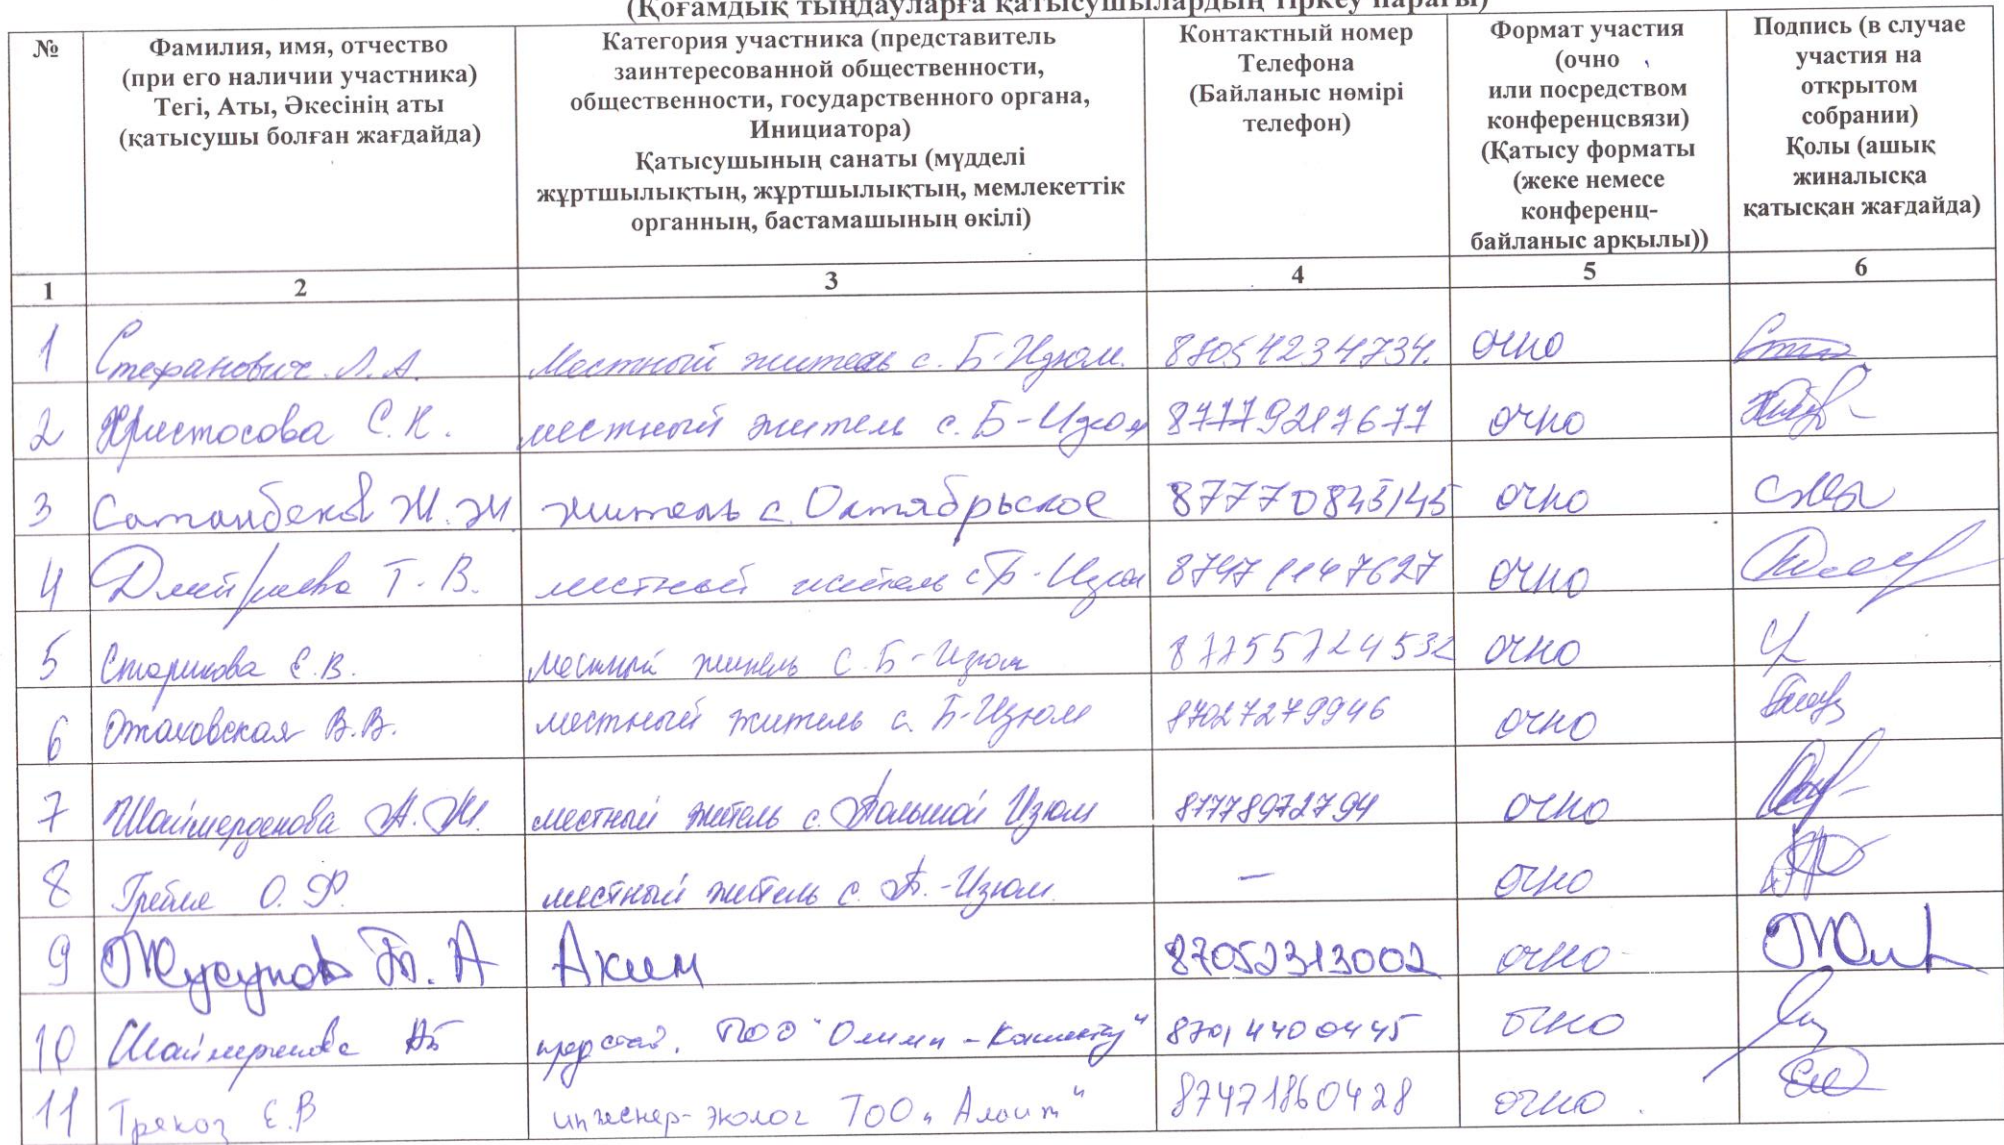 (Қоғамдық тыңдауларға қатысушылардың тіркеу парағы)
№
Фамилия, имя, отчество
(при его наличии участника)
Тегі, Аты, Әкесінің аты
(қатысушы болған жағдайда)
Категория участника (представитель
заинтересованной общественности,
общественности, государственного органа,
Инициатора)
Қатысушының санаты (мүдделі
жұртшылықтың, жұртшылықтың, мемлекеттік
органның, бастамашының өкілі)
Контактный номер
Телефона
(Байланыс нөмірі
телефон)
Формат участия
(очно
или посредством
конференцсвязи)
(Қатысу форматы
(жеке немесе
конференц-
байланыс арқылы))
Подпись (в случае
участия на
открытом
собрании)
Қолы (ашық
жиналысқа
қатысқан жағдайда)
1 2 3 4 5 6
1 Стефанович Л.А. Местный житель с. Б-Изюм. 87054234734. очно
2 Христосова С.К. местный житель с. Б-Изюм 87779217677 очно
3 Сатанбеков Ж.Ж. житель с. Октябрьское 87770845145 очно
4 Дмитриева Т.В. местный житель с Б-Изюм 87471147627 очно
5 Старикова Е.В. местный житель с Б-Изюм 87755724532 очно
6 Отаковская В.В. местный житель с. Б-Изюм 87027279946 очно
7 Шаймерденова А.Ж. местный житель с. Большой Изюм 87778972794 очно
8 О.Ф. местный житель с. Б.-Изюм. – очно
9 Жусупов Б.А Аким 87052313002 очно
10 АБ представ. ТОО "Олимп - 87014400445 очно
11 Трекоз Е.В инженер-эколог ТОО "Алаит" 87471860428 очно.